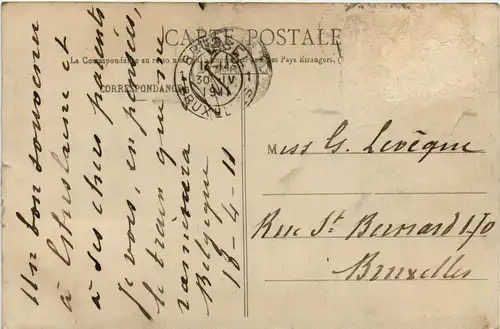 CARTE POSTALE
La Correspondance au recto n'est pas Pays Étrangers, (
CORRESPONDANCE
BRUSSEL
30 IV
1911
BRUXELLES
Un bon souvenir
à et
à ses chers parents
Je vois, en pensées,
le train qui me
ramènera
Belgique
18-4-11
Miss G. Levêque
Rue St Bernard 170
Bruxelles